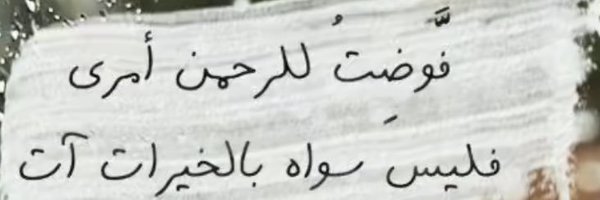 فَّوضِتُ للرحمن أمرى
فليس سواه بالخيرات آت